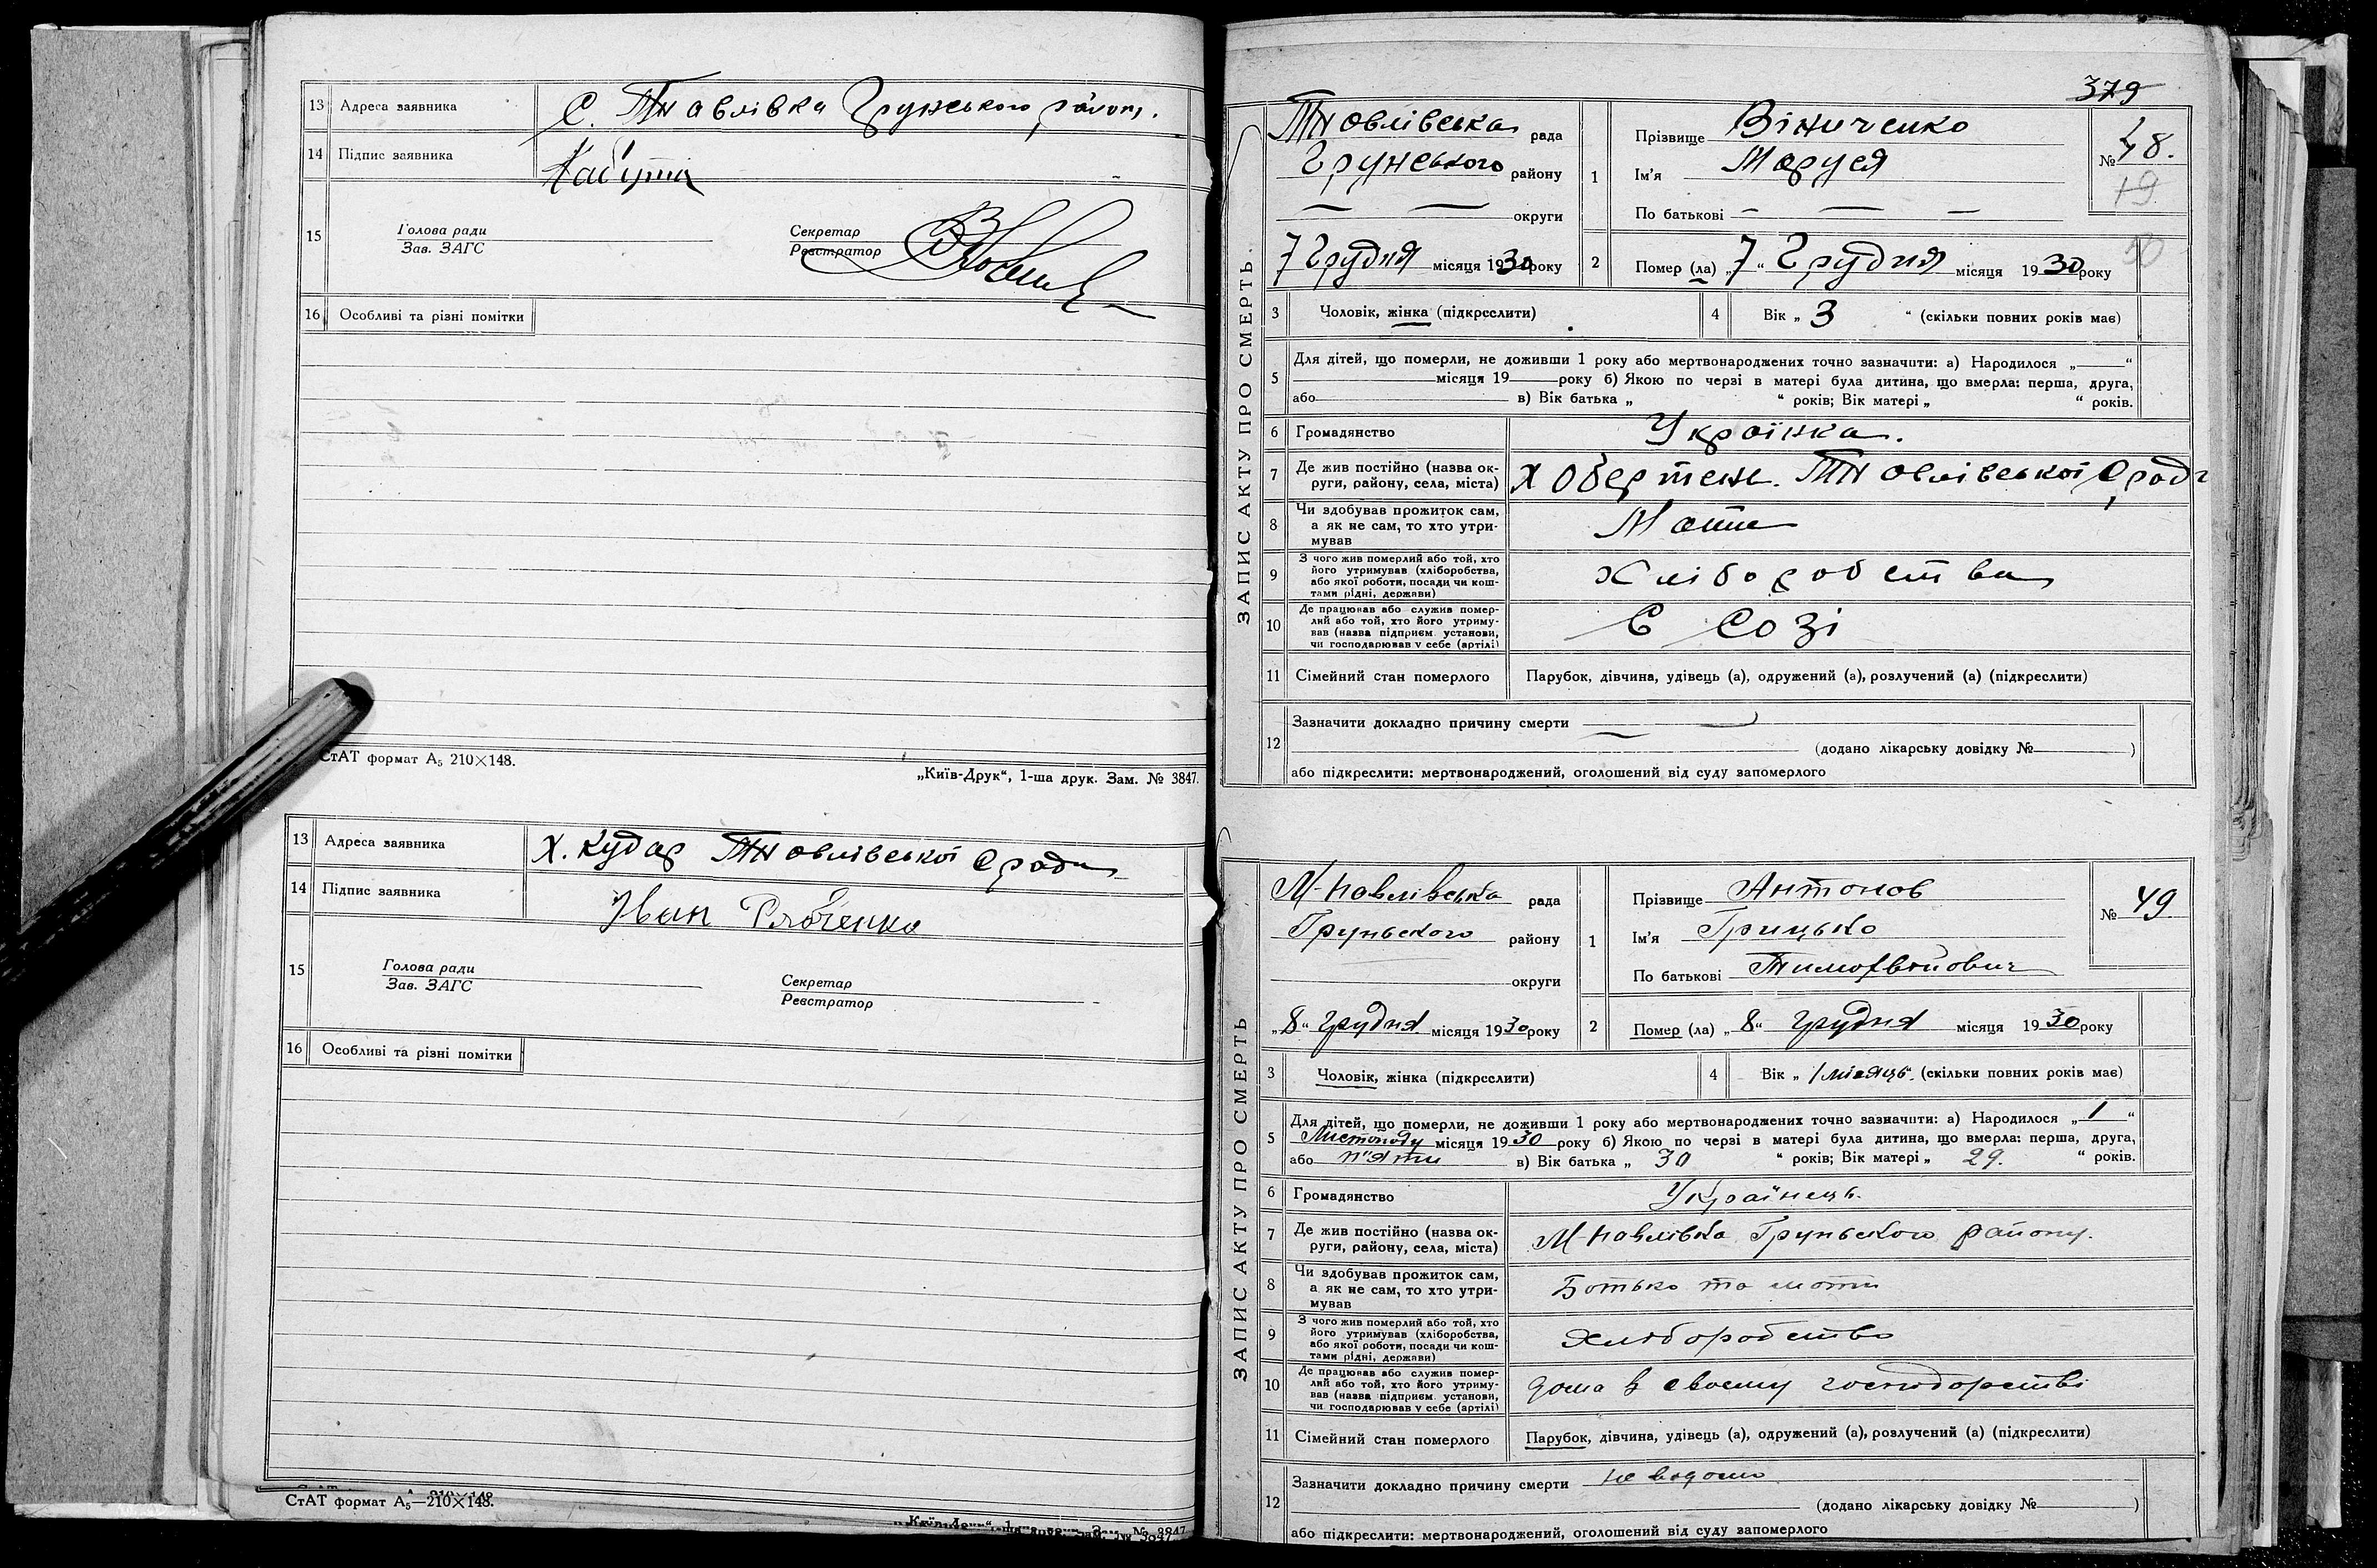 13 Адреса заявника С. Павлівка Грунського району.
14 Підпис заявника
15 Голова ради
Зав. ЗАГС
Секретар
Реєстратор
16 Особливі та різні помітки
СтАТ формат А₅ 210×148.
„Київ-Друк“, 1-ша друк. Зам. № 3847.
13 Адреса заявника Х. Кудар Павлівської С ради
14 Підпис заявника Іван
15 Голова ради
Зав. ЗАГС
Секретар
Реєстратор
16 Особливі та різні помітки
СтАТ формат А₅—210×148.
379
ЗАПИС АКТУ ПРО СМЕРТЬ.
Павлівська рада
Грунського району
округи
7 Грудня місяця 1930 року
1 Прізвище Віниченко
Ім'я Маруся
По батькові — — —
№ 48.
19
50
2 Помер (ла) „7“ Грудня місяця 1930 року
3 Чоловік, жінка (підкреслити)
4 Вік „ 3 “ (скільки повних років має)
5 Для дітей, що померли, не доживши 1 року або мертвонароджених точно зазначити: а) Народилося „ “
місяця 19 року б) Якою по черзі в матері була дитина, що вмерла: перша, друга,
або в) Вік батька „ “ років; Вік матері „ “ років.
6 Громадянство Українка.
7 Де жив постійно (назва ок-
руги, району, села, міста) х Обертень. Павлівської С рад
8 Чи здобував прожиток сам,
а як не сам, то хто утри-
мував Мати
9 З чого жив померлий або той, хто
його утримував (хліборобства,
або якої роботи, посади чи кош-
тами рідні, держави) Хліборобства
10 Де працював або служив помер-
лий або той, хто його утриму-
вав (назва підприєм. установи,
чи господарював у себе (артілі) В Созі
11 Сімейний стан померлого Парубок, дівчина, удівець (а), одружений (а), розлучений (а) (підкреслити)
12 Зазначити докладно причину смерти —
(додано лікарську довідку № )
або підкреслити: мертвонароджений, оголошений від суду запомерлого
ЗАПИС АКТУ ПРО СМЕРТЬ
М-Павлівська рада
Груньского району
округи
„8“ грудня місяця 1930 року
1 Прізвище Антонов
Ім'я Грицько
По батькові Тимофвійович
№ 49
2 Помер (ла) „8“ грудня місяця 1930 року
3 Чоловік, жінка (підкреслити)
4 Вік „ 1 місяць“ (скільки повних років має)
5 Для дітей, що померли, не доживши 1 року або мертвонароджених точно зазначити: а) Народилося „ 1 “
Листопаду місяця 1930 року б) Якою по черзі в матері була дитина, що вмерла: перша, друга,
або п"яти в) Вік батька „ 30 “ років; Вік матері „ 29. “ років.
6 Громадянство Українець.
7 Де жив постійно (назва ок-
руги, району, села, міста) М-Павлівка Груньского району.
8 Чи здобував прожиток сам,
а як не сам, то хто утри-
мував Батько та мати
9 З чого жив померлий або той, хто
його утримував (хліборобства,
або якої роботи, посади чи кош-
тами рідні, держави) Хліборобство
10 Де працював або служив помер-
лий або той, хто його утриму-
вав (назва підприєм. установи,
чи господарював у себе (артілі) дома в своему господарстві
11 Сімейний стан померлого Парубок, дівчина, удівець (а), одружений (а), розлучений (а) (підкреслити)
12 Зазначити докладно причину смерти не відомо
(додано лікарську довідку № )
або підкреслити: мертвонароджений, оголошений від суду запомерлого